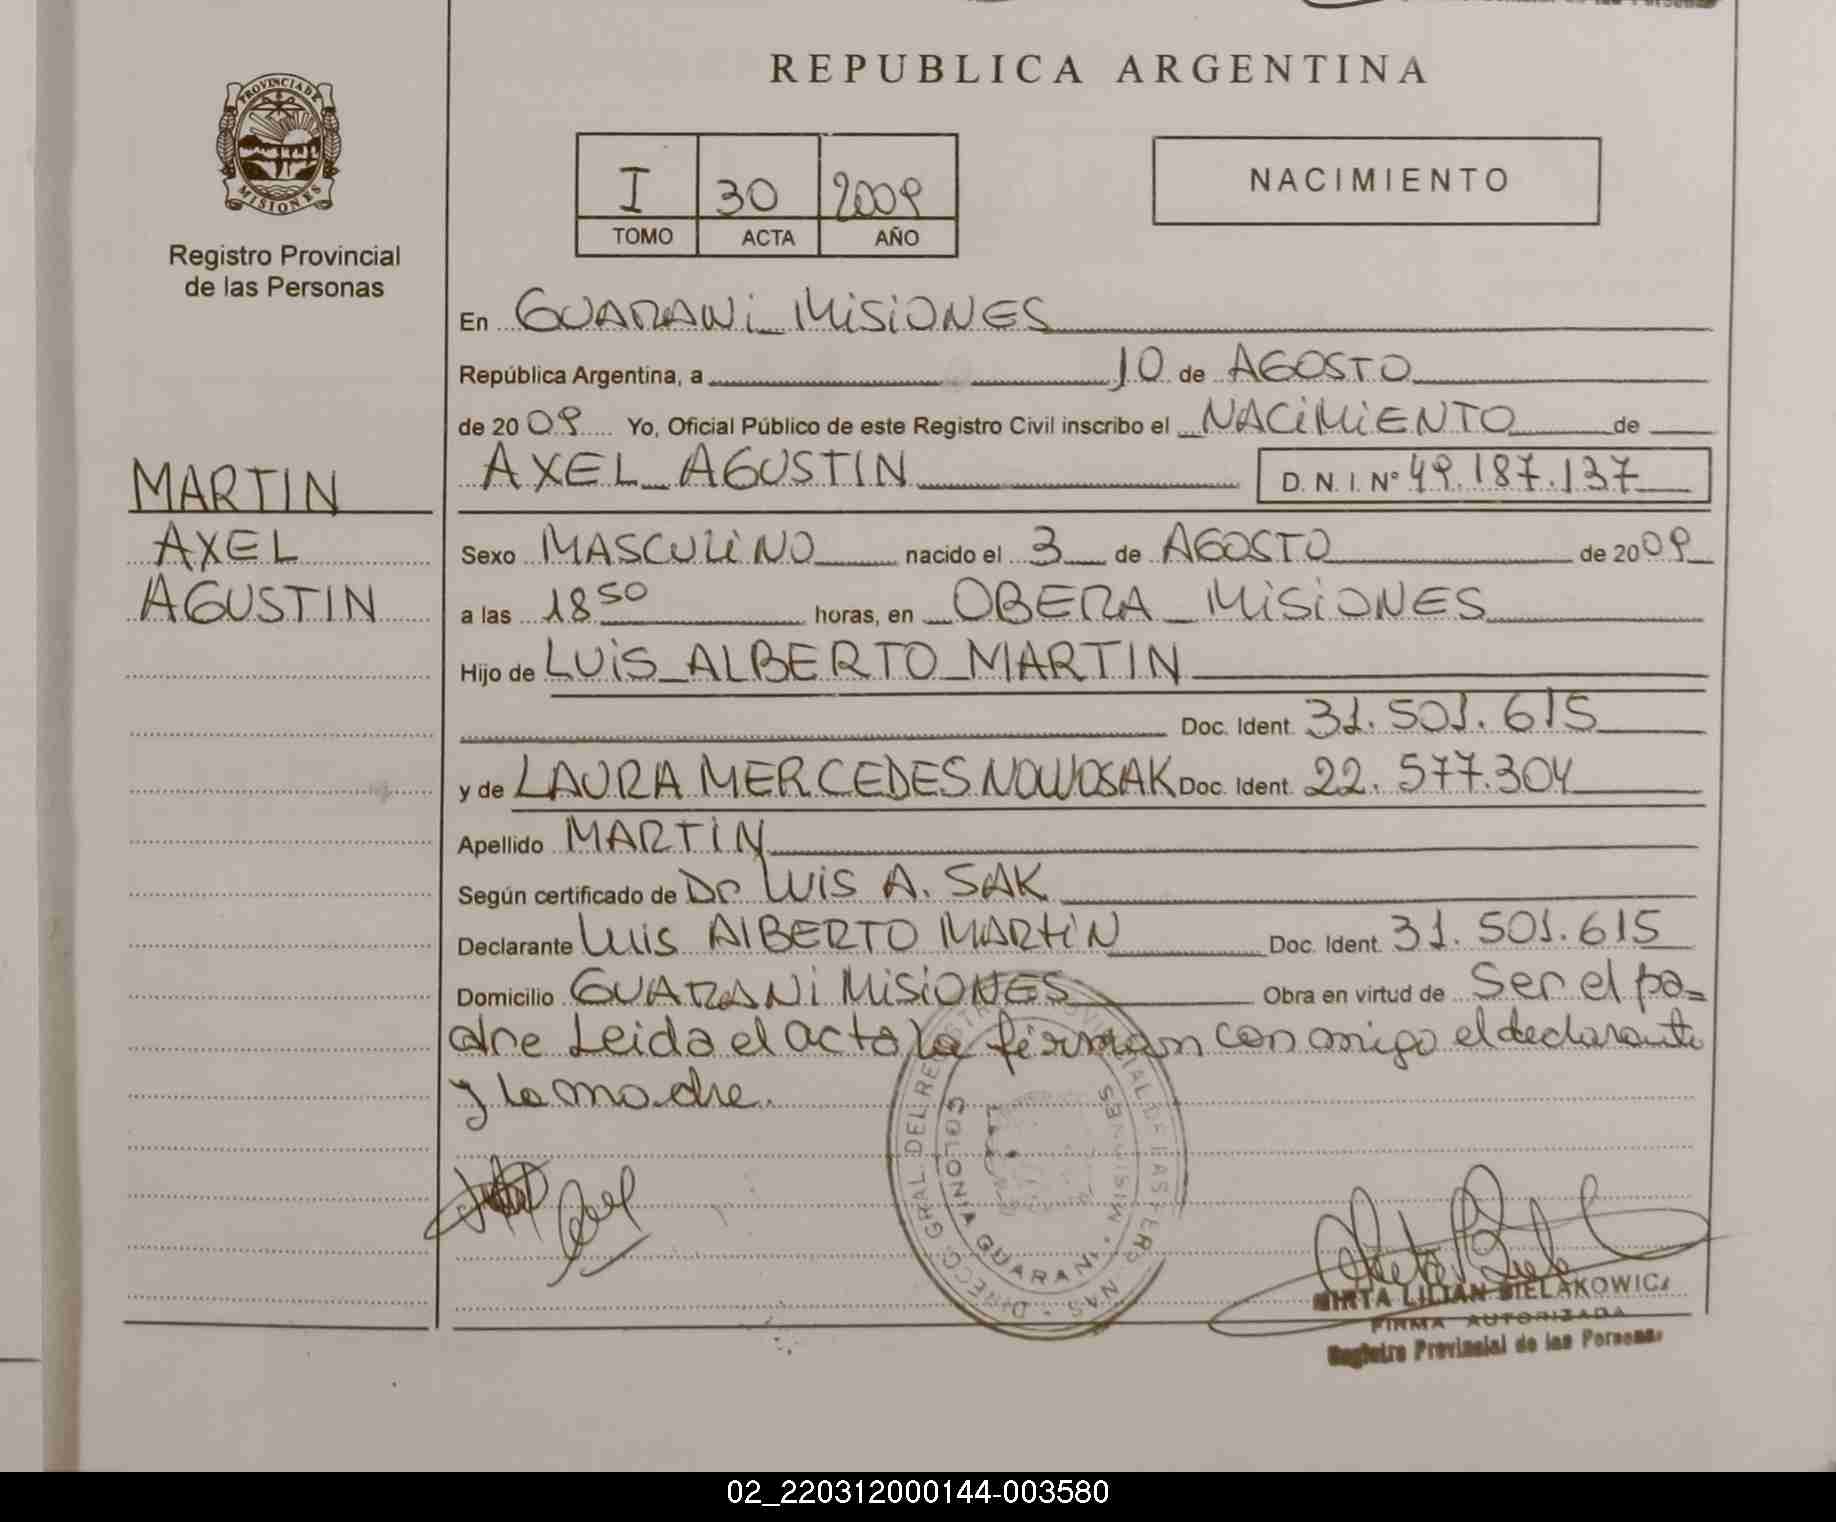 REPUBLICA ARGENTINA
PROVINCIA DE
MISIONES
Registro Provincial
de las Personas
I 30 2009
TOMO ACTA AÑO
NACIMIENTO
En GUARANI MISIONES
República Argentina, a 10 de AGOSTO
de 2009 Yo, Oficial Público de este Registro Civil inscribo el NACIMIENTO de
AXEL AGUSTIN D. N. I. Nº 49.187.137
MARTIN
AXEL
AGUSTIN
Sexo MASCULINO nacido el 3 de AGOSTO de 2009
a las 18 50 horas, en OBERA MISIONES
Hijo de LUIS ALBERTO MARTIN
Doc. Ident. 31.501.615
y de LAURA MERCEDES NOWOSAK Doc. Ident. 22.577.304
Apellido MARTIN
Según certificado de Dr LUIS A. SAK
Declarante LUIS ALBERTO MARTIN Doc. Ident. 31.501.615
Domicilio GUARANI MISIONES Obra en virtud de Ser el pa=
dre Leida el acta la firman con migo el declarante
y la madre.
DIRECC. GRAL DEL REGISTRO PROVINCIAL DE LAS PERSONAS
COLONIA GUARANI · MISIONES
MIRTA LILIAN BIELAKOWICZ
FIRMA AUTORIZADA
Registro Provincial de las Personas
02_220312000144-003580